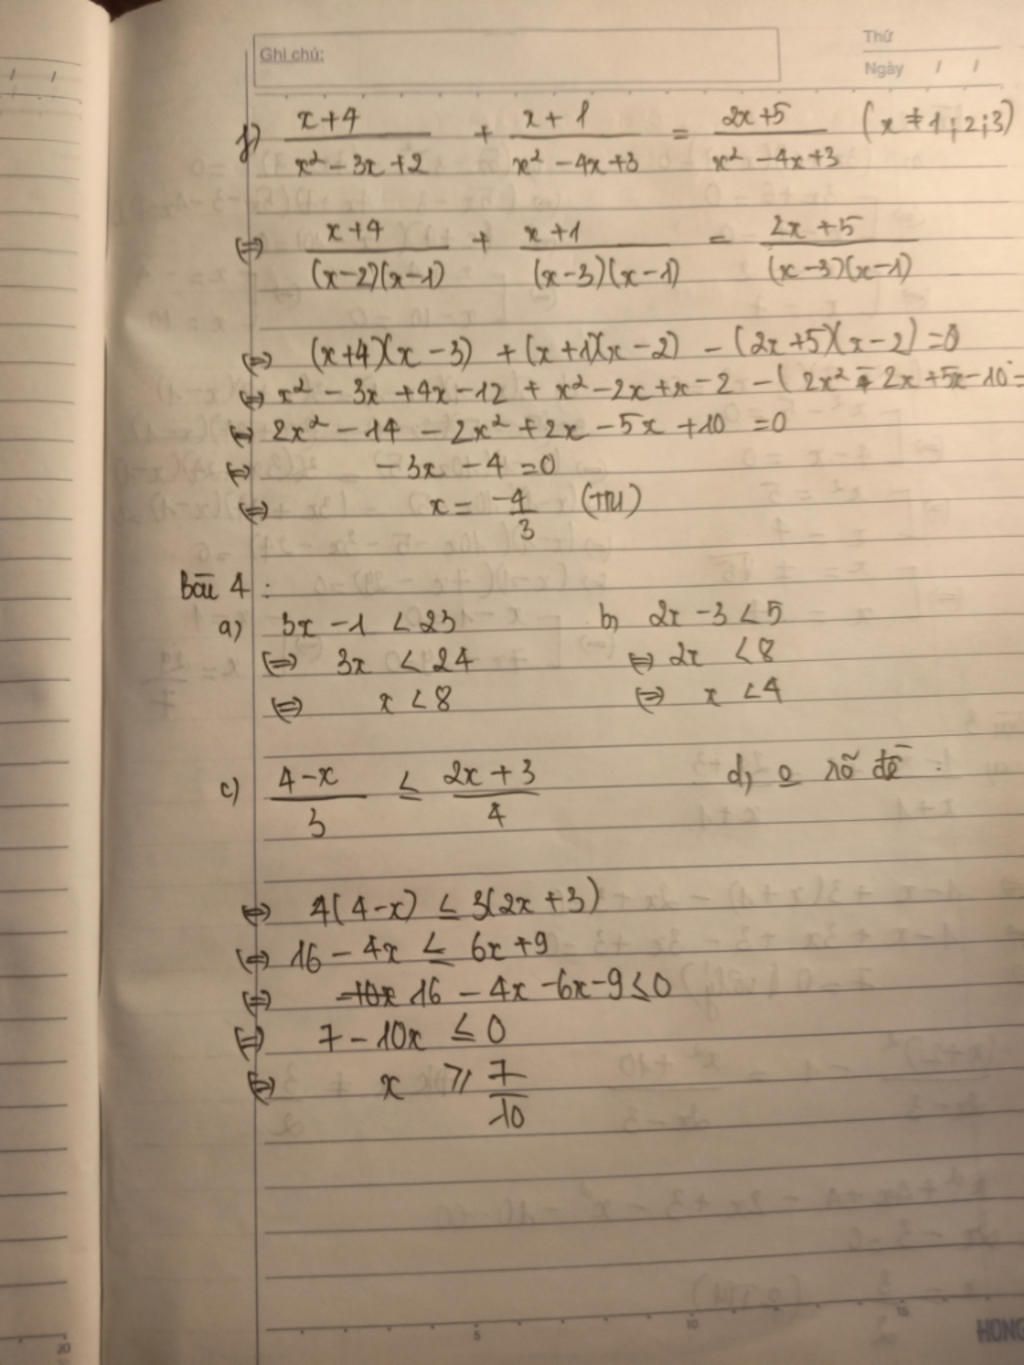 Ghi chú:
Thứ
Ngày / /
f) (x+4)/(x² – 3x + 2) + (x + 1)/(x² – 4x + 3) = (2x+5)/(x² – 4x + 3) (x ≠ 1; 2; 3)
(=) (x+4)/((x–2)(x–1)) + (x+1)/((x–3)(x–1)) = (2x+5)/((x–3)(x–1))
(=) (x+4)(x – 3) + (x+1)(x – 2) – (2x+5)(x – 2) = 0
(=) x² – 3x + 4x – 12 + x² – 2x + x – 2 – ( 2x² – 2x + 5x – 10 =
(=) 2x² – 14 – 2x² + 2x – 5x + 10 = 0
(=) – 3x – 4 = 0
(=) x = –4/3 (TM)
Bài 4 :
a) 3x – 1 < 23 b) 2x – 3 < 5
(=) 3x < 24 (=) 2x < 8
(=) x < 8 (=) x < 4
c) (4 – x)/3 ≤ (2x + 3)/4 d) o rõ đề .
(=) 4(4–x) ≤ 3(2x + 3)
(=) 16 – 4x ≤ 6x + 9
(=) 16 – 4x – 6x – 9 ≤ 0
(=) 7 – 10x ≤ 0
(=) x ≥ 7/10
5 10 15
20
HONG